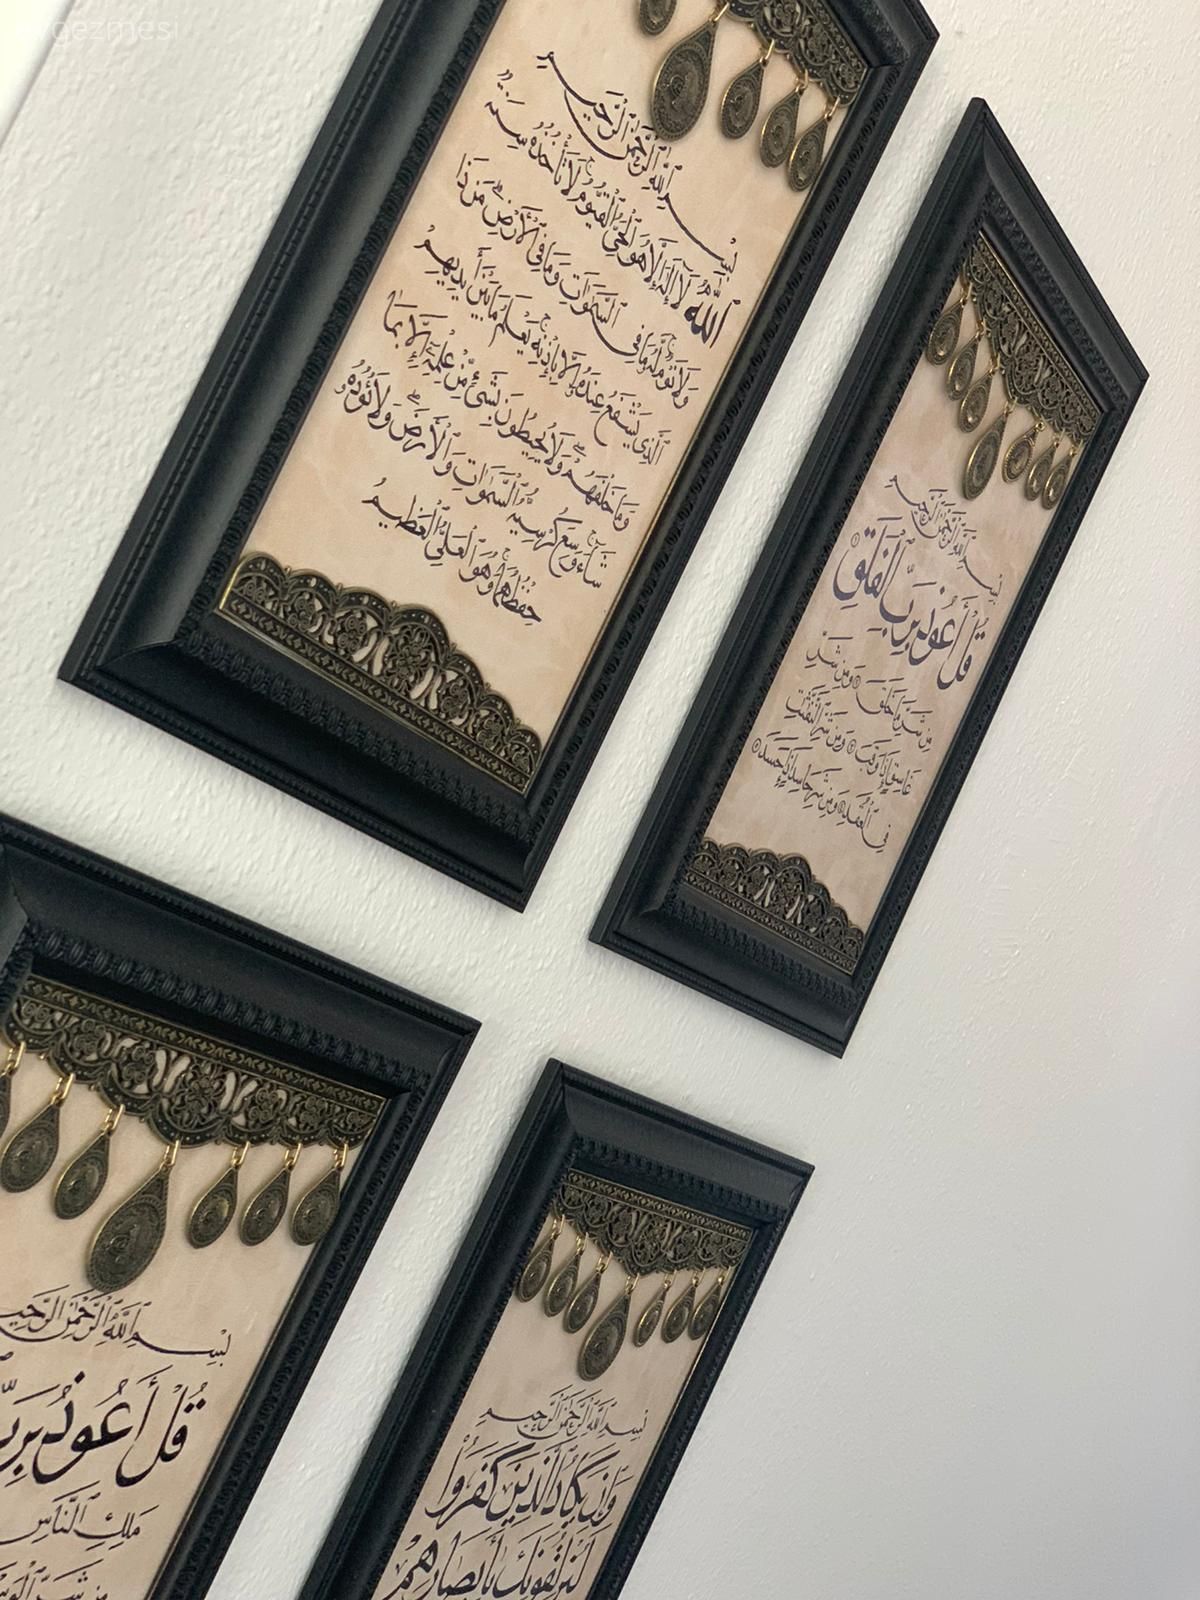 evgezmesi
بسم الله الرحمن الرحيم
الله لا إله إلا هو الحي القيوم لا تأخذه سنة
ولا نوم له ما في السموات وما في الأرض من ذا
الذي يشفع عنده إلا بإذنه يعلم ما بين أيديهم
وما خلفهم ولا يحيطون بشيء من علمه إلا بما
شاء وسع كرسيه السموات والأرض ولا يؤده
حفظهما وهو العلي العظيم
بسم الله الرحمن الرحيم
قل أعوذ برب الفلق
من شر ما خلق ومن شر
غاسق إذا وقب ومن شر النفثت
في العقد ومن شر حاسد إذا حسد
بسم الله الرحمن الرحيم
قل أعوذ برب
ملك الناس
من شر
بسم الله الرحمن الرحيم
وإن يكاد الذين كفروا
ليزلقونك بأبصارهم